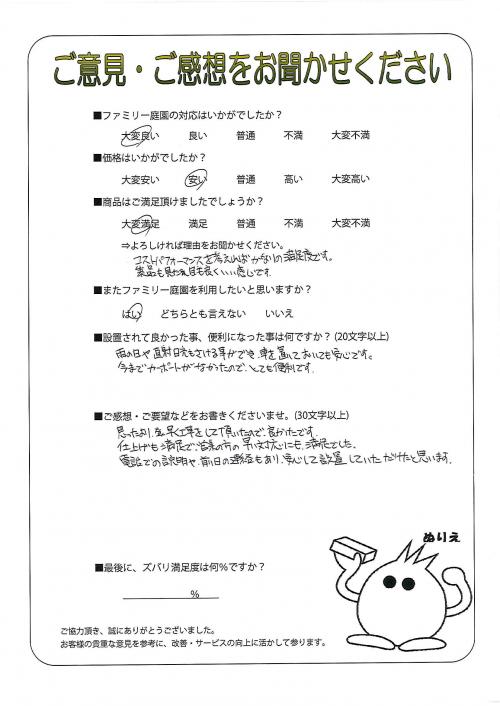 ご意見・ご感想をお聞かせください
■ファミリー庭園の対応はいかがでしたか？
大変良い 良い 普通 不満 大変不満
■価格はいかがでしたか？
大変安い 安い 普通 高い 大変高い
■商品はご満足頂けましたでしょうか？
大変満足 満足 普通 不満 大変不満
⇒よろしければ理由をお聞かせください。
コストパフォーマンスを考えればかなりの満足度です。
製品も見た目も良く、いい感じです。
■またファミリー庭園を利用したいと思いますか？
はい どちらとも言えない いいえ
■設置されて良かった事、便利になった事は何ですか？(20文字以上)
雨の日や直射日光もさける事ができ、車を置いておいても安心です。
今までカーポートがなかったので、とても便利です。
■ご感想・ご要望などをお書きくださいませ。(30文字以上)
思ったより、早く工事をして頂いたので、良かったです。
仕上げも満足で、営業の方の早い対応にも満足でした。
電話での説明や、前日の連絡もあり、安心して設置していただけたと思います。
ぬりえ
■最後に、ズバリ満足度は何％ですか？
％
ご協力頂き、誠にありがとうございました。
お客様の貴重な意見を参考に、改善・サービスの向上に活かして参ります。